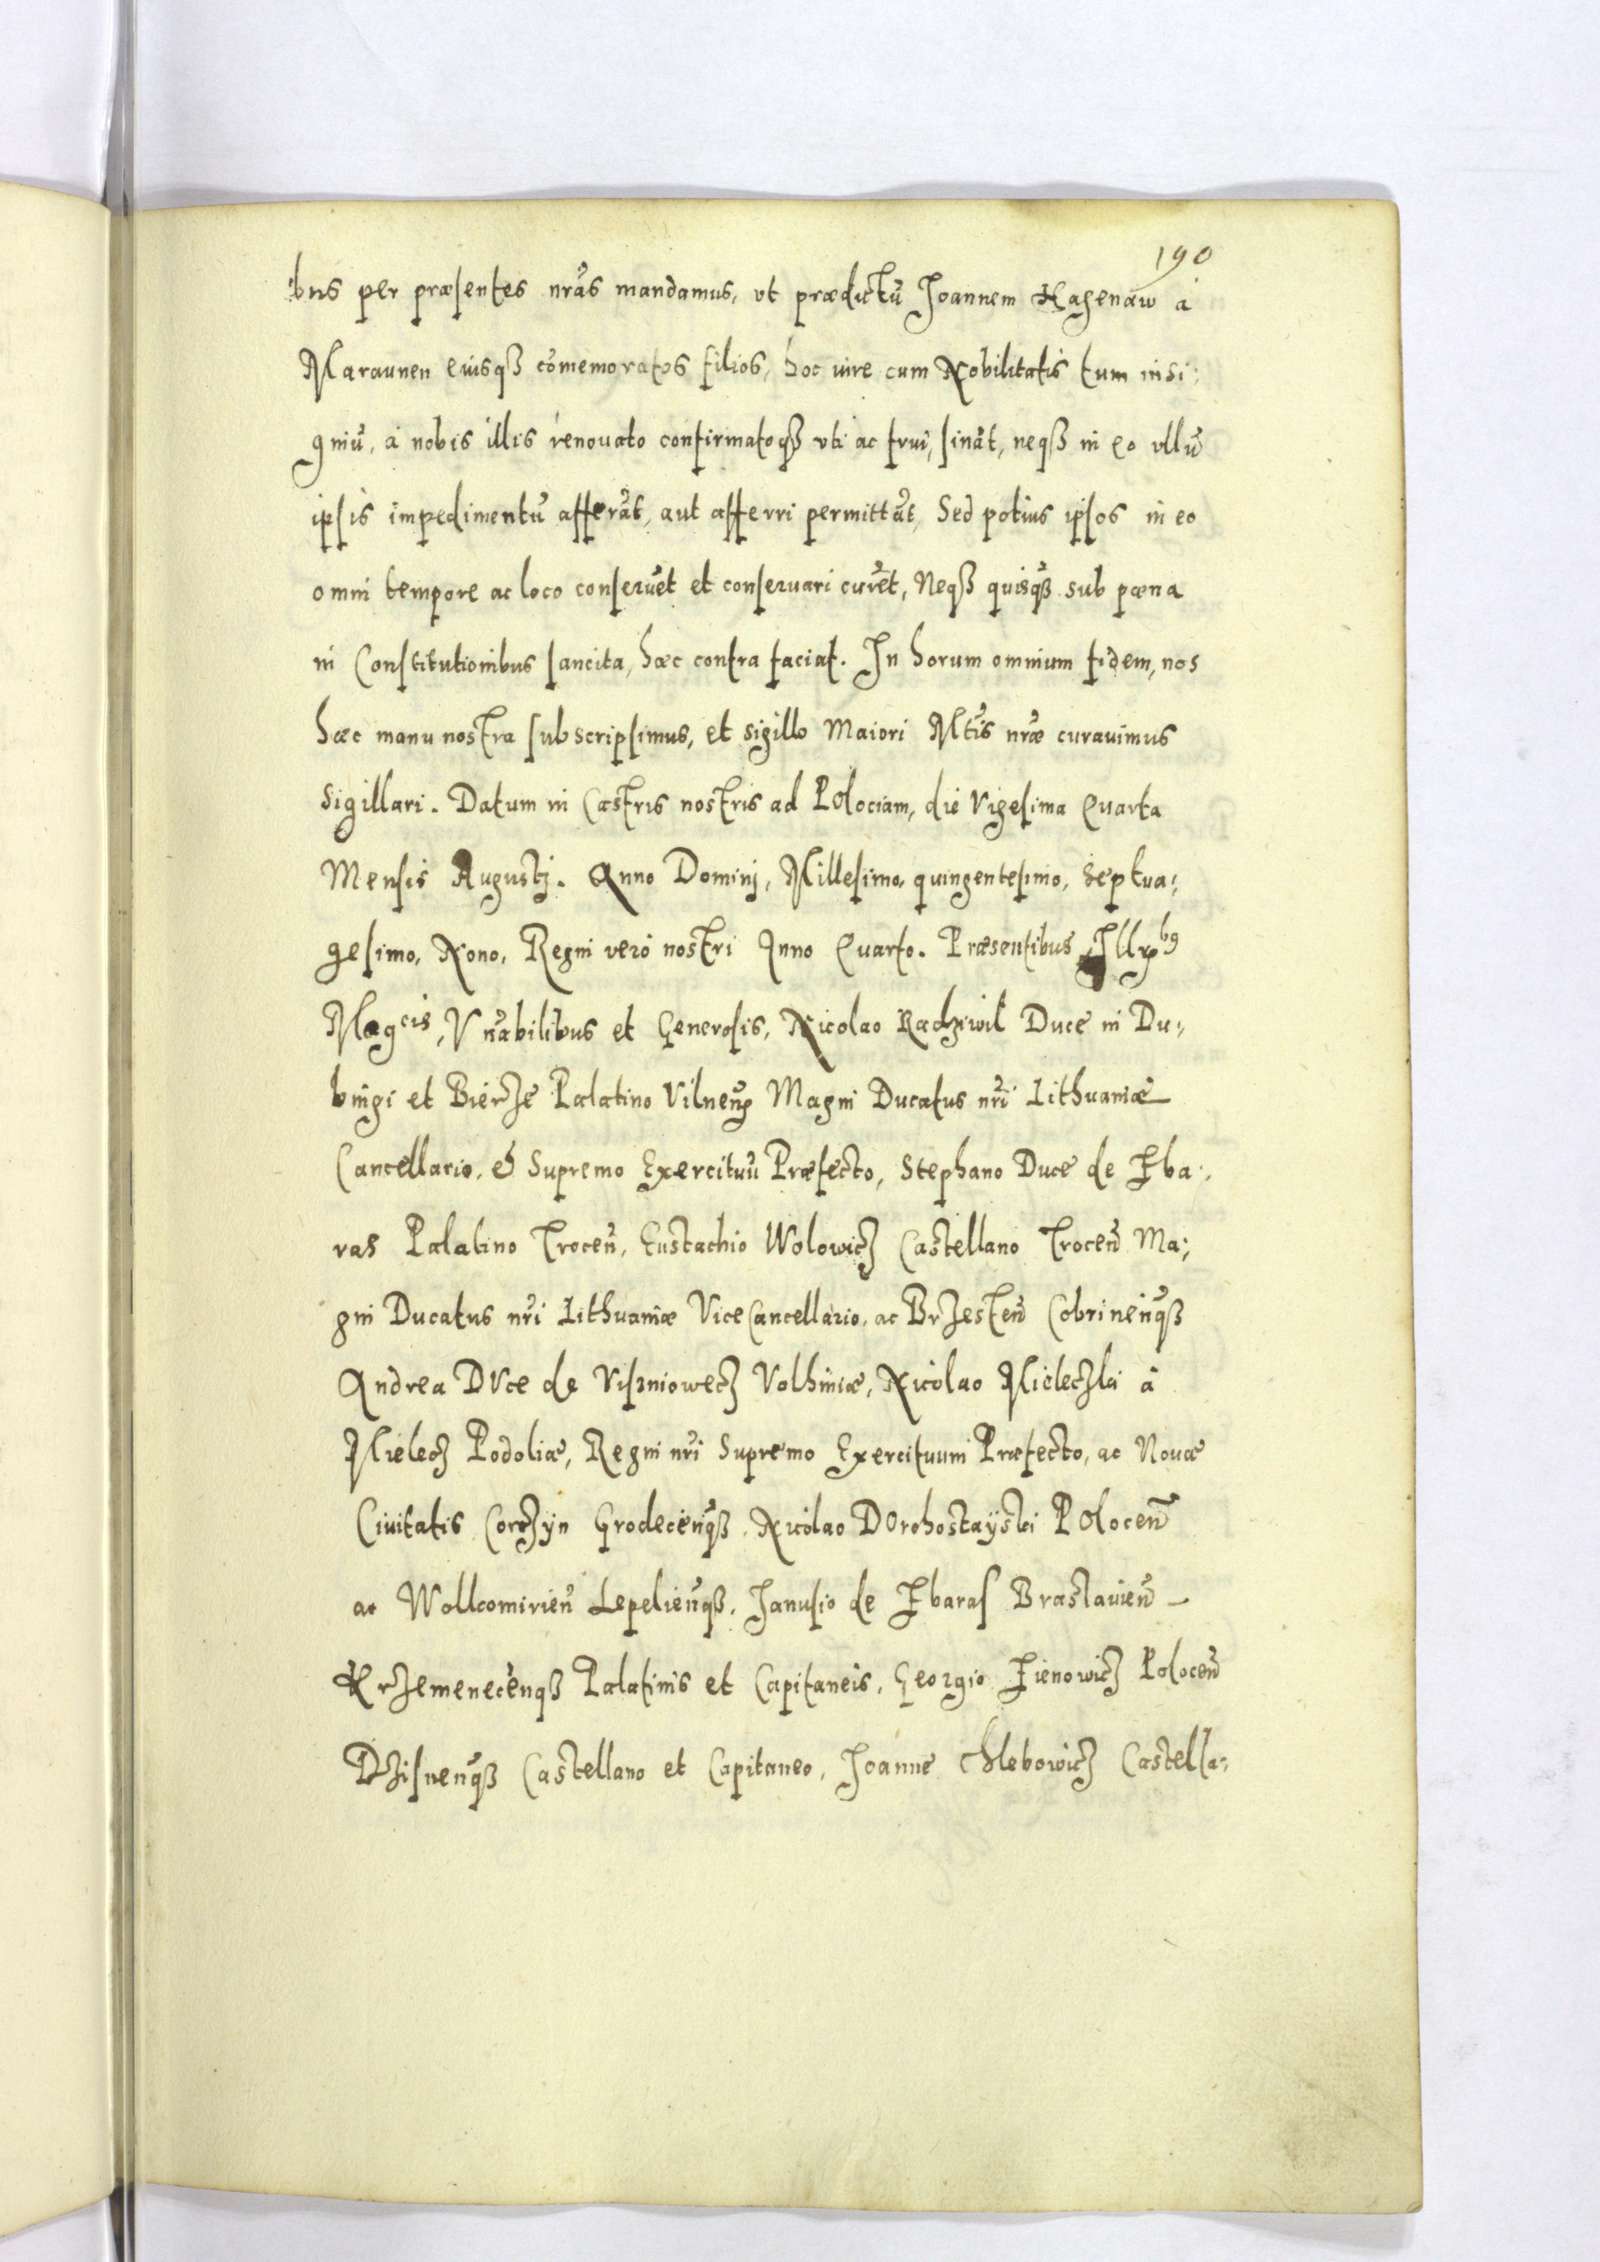 190
bus per præsentes nrãs mandamus, vt prædictũ Joannem Hagenaw à
Maraunen eiusqß cõmemoratos filios, hoc iure cum Nobilitatis tum insi:
gniũ, à nobis illis renouato confirmatoqß vti ac frui, sinãt, neqß in eo vllũ
ipsis impedimentũ afferãt, aut afferri permittãt, Sed potius ipsos in eo
omni tempore ac loco conseruẽt et conseruari curẽt, Neqß quisqß sub pœna
in Constitutionibus sancita, hæc contra faciat. In horum omnium fidem, nos
hæc manu nostra subscripsimus, et sigillo Maiori Mtis nræ curauimus
Sigillari. Datum in Castris nostris ad Polociam, die Vigesima Quarta
Mensis Augustj. Anno Dominj, Millesimo, quingentesimo, Septua:
gesimo, Nono, Regni vero nostri Anno Quarto. Præsentibus Illr̃ibus
Magcis, Vnãbilibus et Generosis, Nicolao Radziwil Duce in Du:
bingi et Bierze Palatino Vilneñ Magni Ducatus nr̃i Lithuaniæ
Cancellario, & Supremo Exercituũ Præfecto, Stephano Duce de Zba:
ras Palatino Troceñ, Eustachio Wolowicz Castellano Troceñ Ma:
gni Ducatus nr̃i Lithuaniæ ViceCancellario, ac Brzesteñ Cobrineñqß
Andrea Duce de Visniowecz Volhiniæ, Nicolao Mieleczki à
Mielecz Podoliæ, Regni nr̃i Supremo Exercituum Præfecto, ac Nouæ
Ciuitatis Corczyn Grodeceñqß, Nicolao Dorohostayski Poloceñ
ac Wollcomirieñ Lepelieñqß, Janusio de Zbaras Braslauieñ
Krzemeneceñqß Palatinis et Capitaneis, Georgio Zienowicz Poloceñ
Dzisneñqß Castellano et Capitaneo, Joanne Chlebowicz Castella: